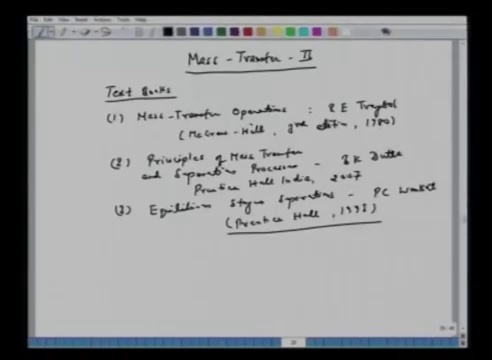 Mass - Transfer - II
Text Books
(1) Mass-Transfer Operations : R E Treybal
(McGraw-Hill, 3rd edition, 1980)
(2) Principles of Mass Transfer
and Separation Processes - B K Dutta
Prentice Hall India, 2007
(3) Equilibrium Stages Separations - PC Wankat
(Prentice Hall, 1998)